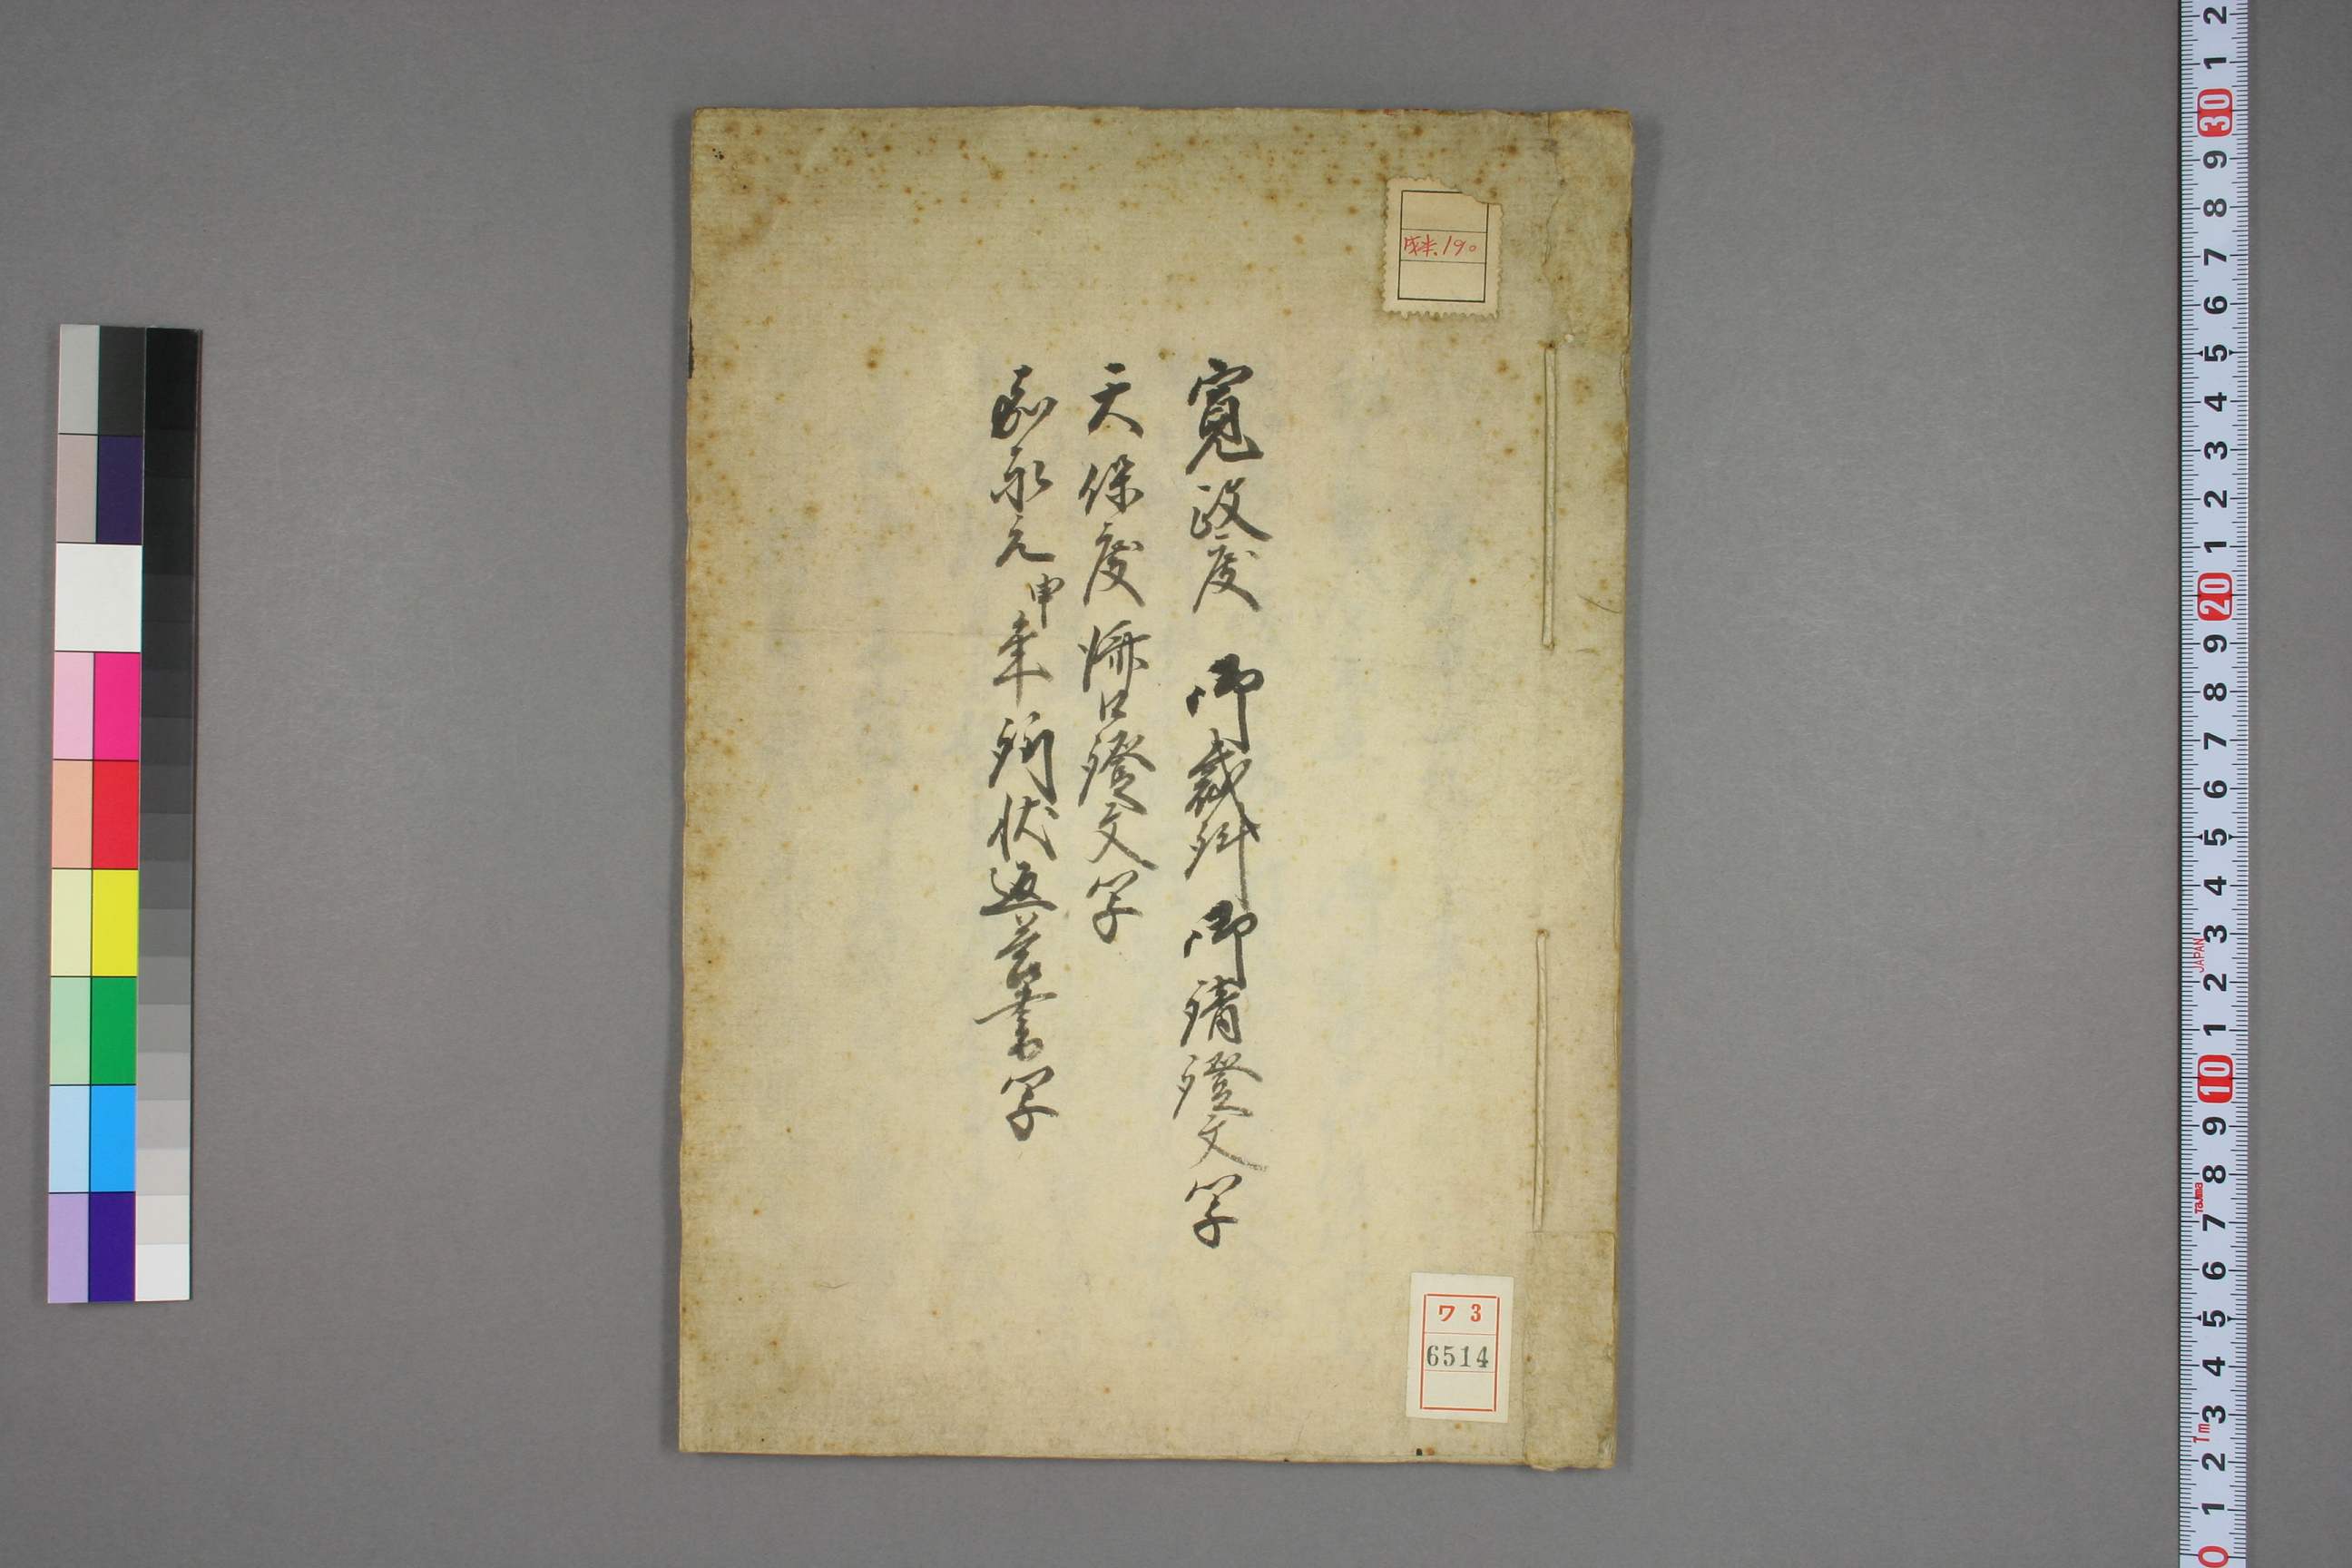 寛政度 御裁許御請證文写
天保度済口證文写
嘉永元申年訴状返答書写
成未.190
ワ 3
6514
JAPAN
Tajima
1m
2
1
30
9
8
7
6
5
4
3
2
1
20
9
8
7
6
5
4
3
2
1
10
9
8
7
6
5
4
3
2
1
0